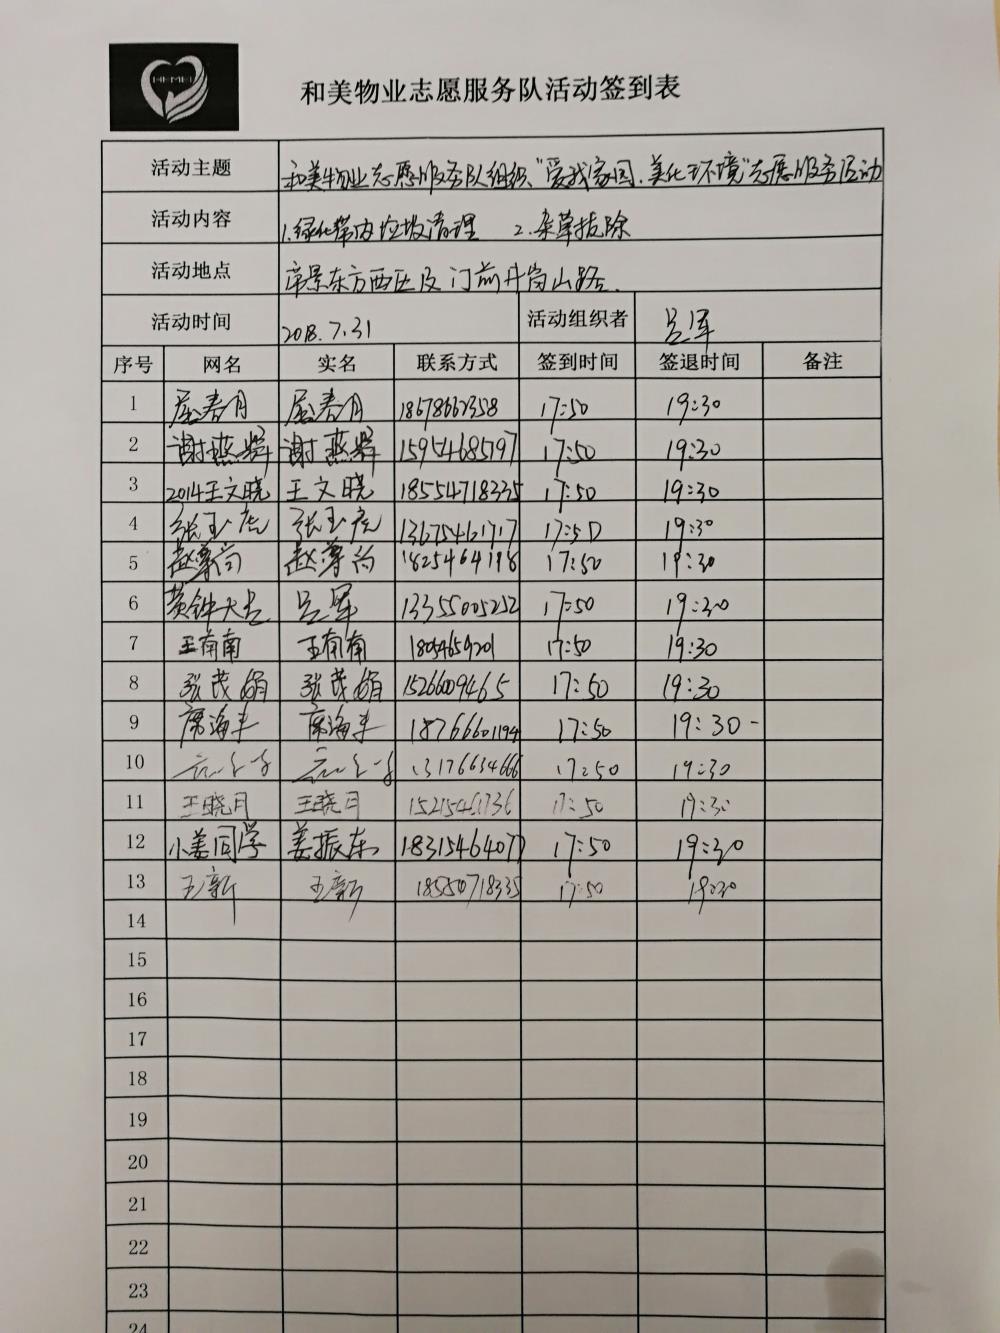 HEMEI
和美物业志愿服务队活动签到表
活动主题 和美物业志愿服务队组织“爱我家园、美化环境”志愿服务活动
活动内容 1.绿化带内垃圾清理 2.杂草拔除
活动地点 帝景东方西区及门前井岗山路.
活动时间 2018.7.31 活动组织者 吕军
序号 网名 实名 联系方式 签到时间 签退时间 备注
1 屈春月 屈春月 18678662358 17:50 19:30
2 谢燕辉 谢燕辉 15954685797 17:50 19:30
3 2014王文晓 王文晓 18554718335 17:50 19:30
4 张玉虎 张玉虎 13675461717 17:50 19:30
5 赵尊尚 赵尊尚 1825464198 17:50 19:30
6 黄钟大吕 吕军 13355005252 17:50 19:30
7 王南南 王南南 18054659201 17:50 19:30
8 张茂娟 张茂娟 15266009465 17:50 19:30
9 席海丰 席海丰 18766601194 17:50 19:30-
10 13176634666 17:50 19:30
11 王晓月 王晓月 15215461736 17:50 19:30
12 小姜同学 姜振东 18315464077 17:50 19:30
13 王新 王新 18550718335 17:50 19:30
14
15
16
17
18
19
20
21
22
23
24